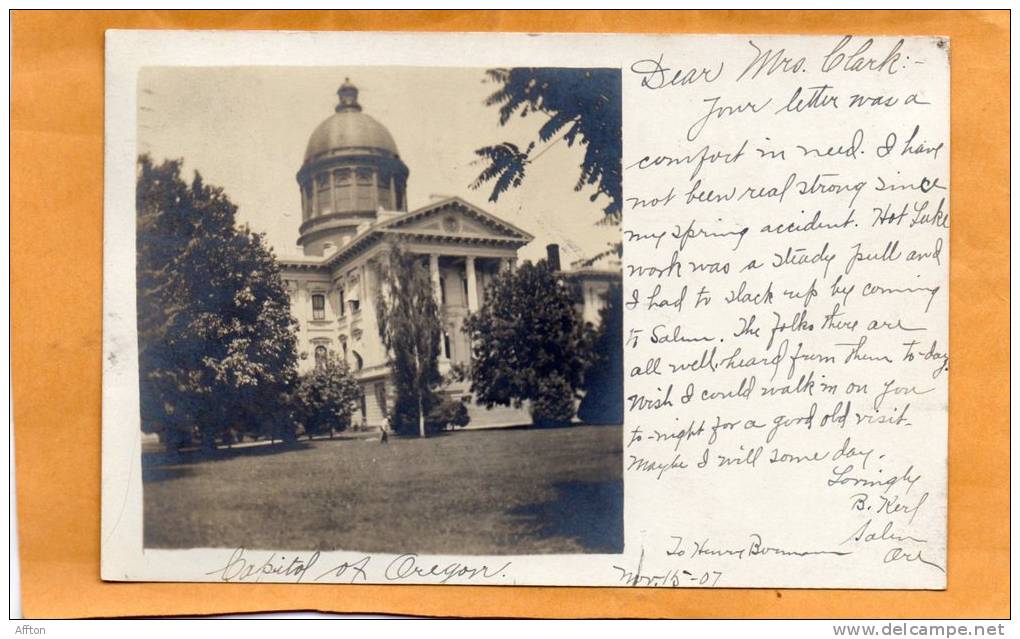 Dear Mrs. Clark:-
Your letter was a
comfort in need. I have
not been real strong since
my spring accident. Hot Lake
work was a steady pull and
I had to slack up by coming
to Salem. The folks there are
all well, heard from them to-day.
Wish I could walk in on you
to-night for a good old visit.
Maybe I will some day.
Lovingly
B. Kerl
Salem
Ore
To Henry Bormann
Nov. 15-07
Capitol of Oregon.
Affton
www.delcampe.net